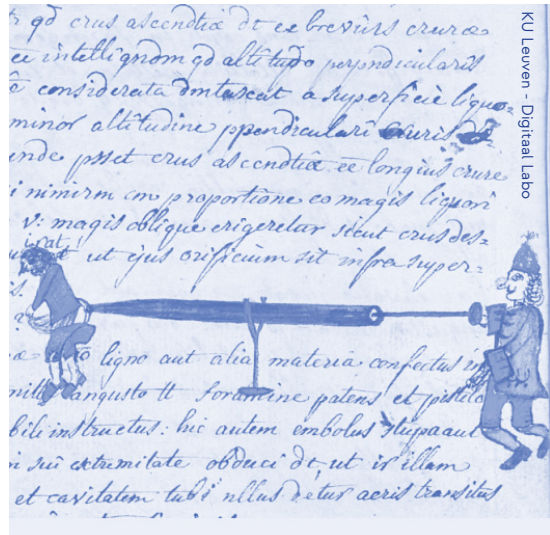 qd crus ascendtiæ dt ee brevius crure
ee intelligndm qd altitudo perpndicularis
considerata dmtaxat a superficie liquo=
minor altitudine ppendiculari cruris
unde psset crus ascendtiæ ee longius crure
nimirm cm proportione eo magis liquori
v: magis oblique erigeretur sicut crus des=
ut ejus orificium sit infra super=
is.
ligno aut alia materia confectus
angusto tt foramine patens et pistilo
bili instructus: hic autem embolus stupa aut
sui extremitate obduci dt, ut ir illam
et cavitatem tubi nllus detur aeris transitus
KU Leuven - Digitaal Labo